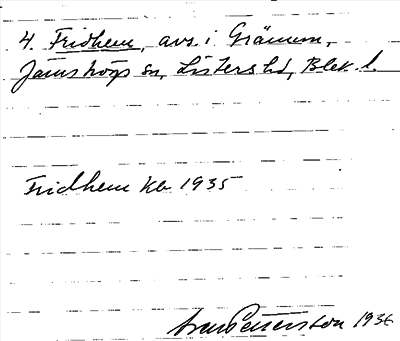 4. Fridhem, avs. i Grämum,
Jämshögs sn, Listers hd, Blek. l.
Fridhem kb 1935
Pettersson 1936